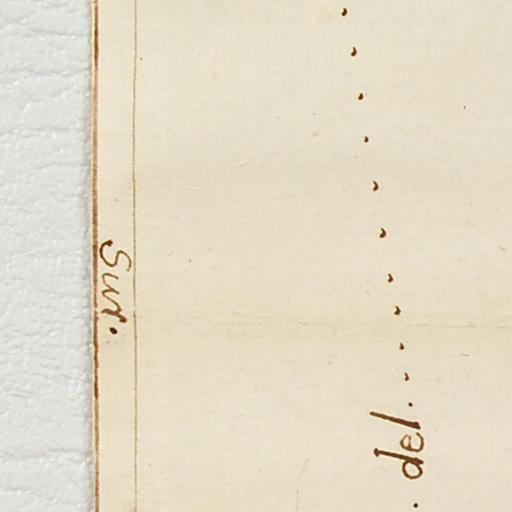 Sur.
del